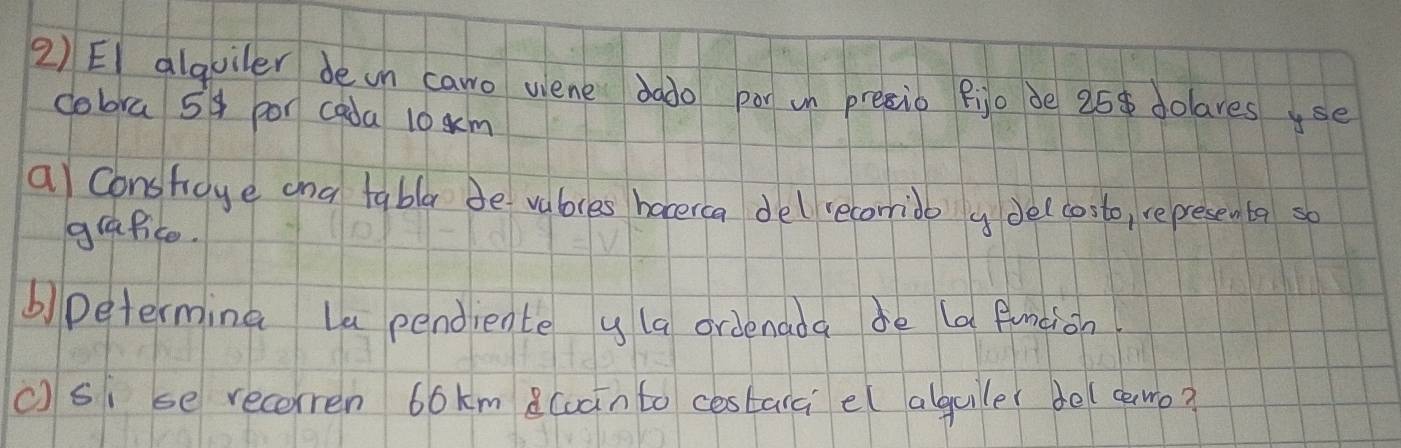 2) El alquiler de un carro viene dado por un presio fijo de 25$ dolares y se
cobra 5$ por cada 10 km
a) Constroye una tabla de valores hacerca del recorrido y del costo, representa so
grafico.
b) Determina La pendiente y la ordenada de la función.
c) si se recorren 60 km ¿cuánto costará el alquiler del carro?